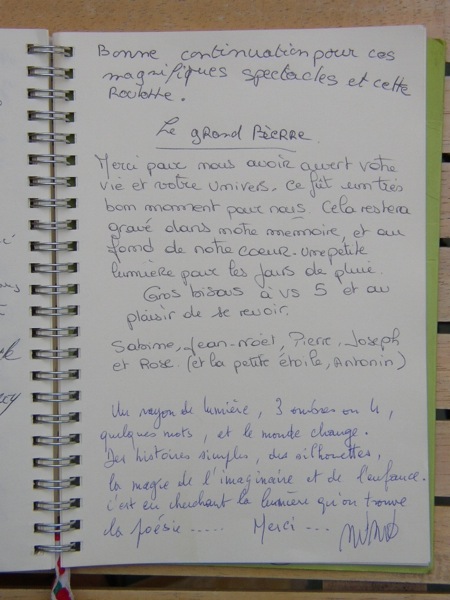 Bonne continuation pour ces
magnifiques spectacles et cette
Roulotte.
Le grand Pierre
Merci pour nous avoir ouvert votre
vie et votre univers. Ce fût un très
bon moment pour nous. Cela restera
gravé dans notre memoire et au
fond de notre coeur. Une petite
lumière pour les jours de pluie.
Gros bisous à vs 5 et au
plaisir de se revoir.
Sabine, Jean-Noël, Pierre, Joseph
et Rose. (et la petite étoile, Antonin)
Un rayon de lumière, 3 ombres ou 4,
quelques mots, et le monde change.
Des histoires simples, des silhouettes,
la magie de l'imaginaire et de l'enfance.
c'est en cherchant la lumière qu'on trouve
la poésie ..... Merci ...